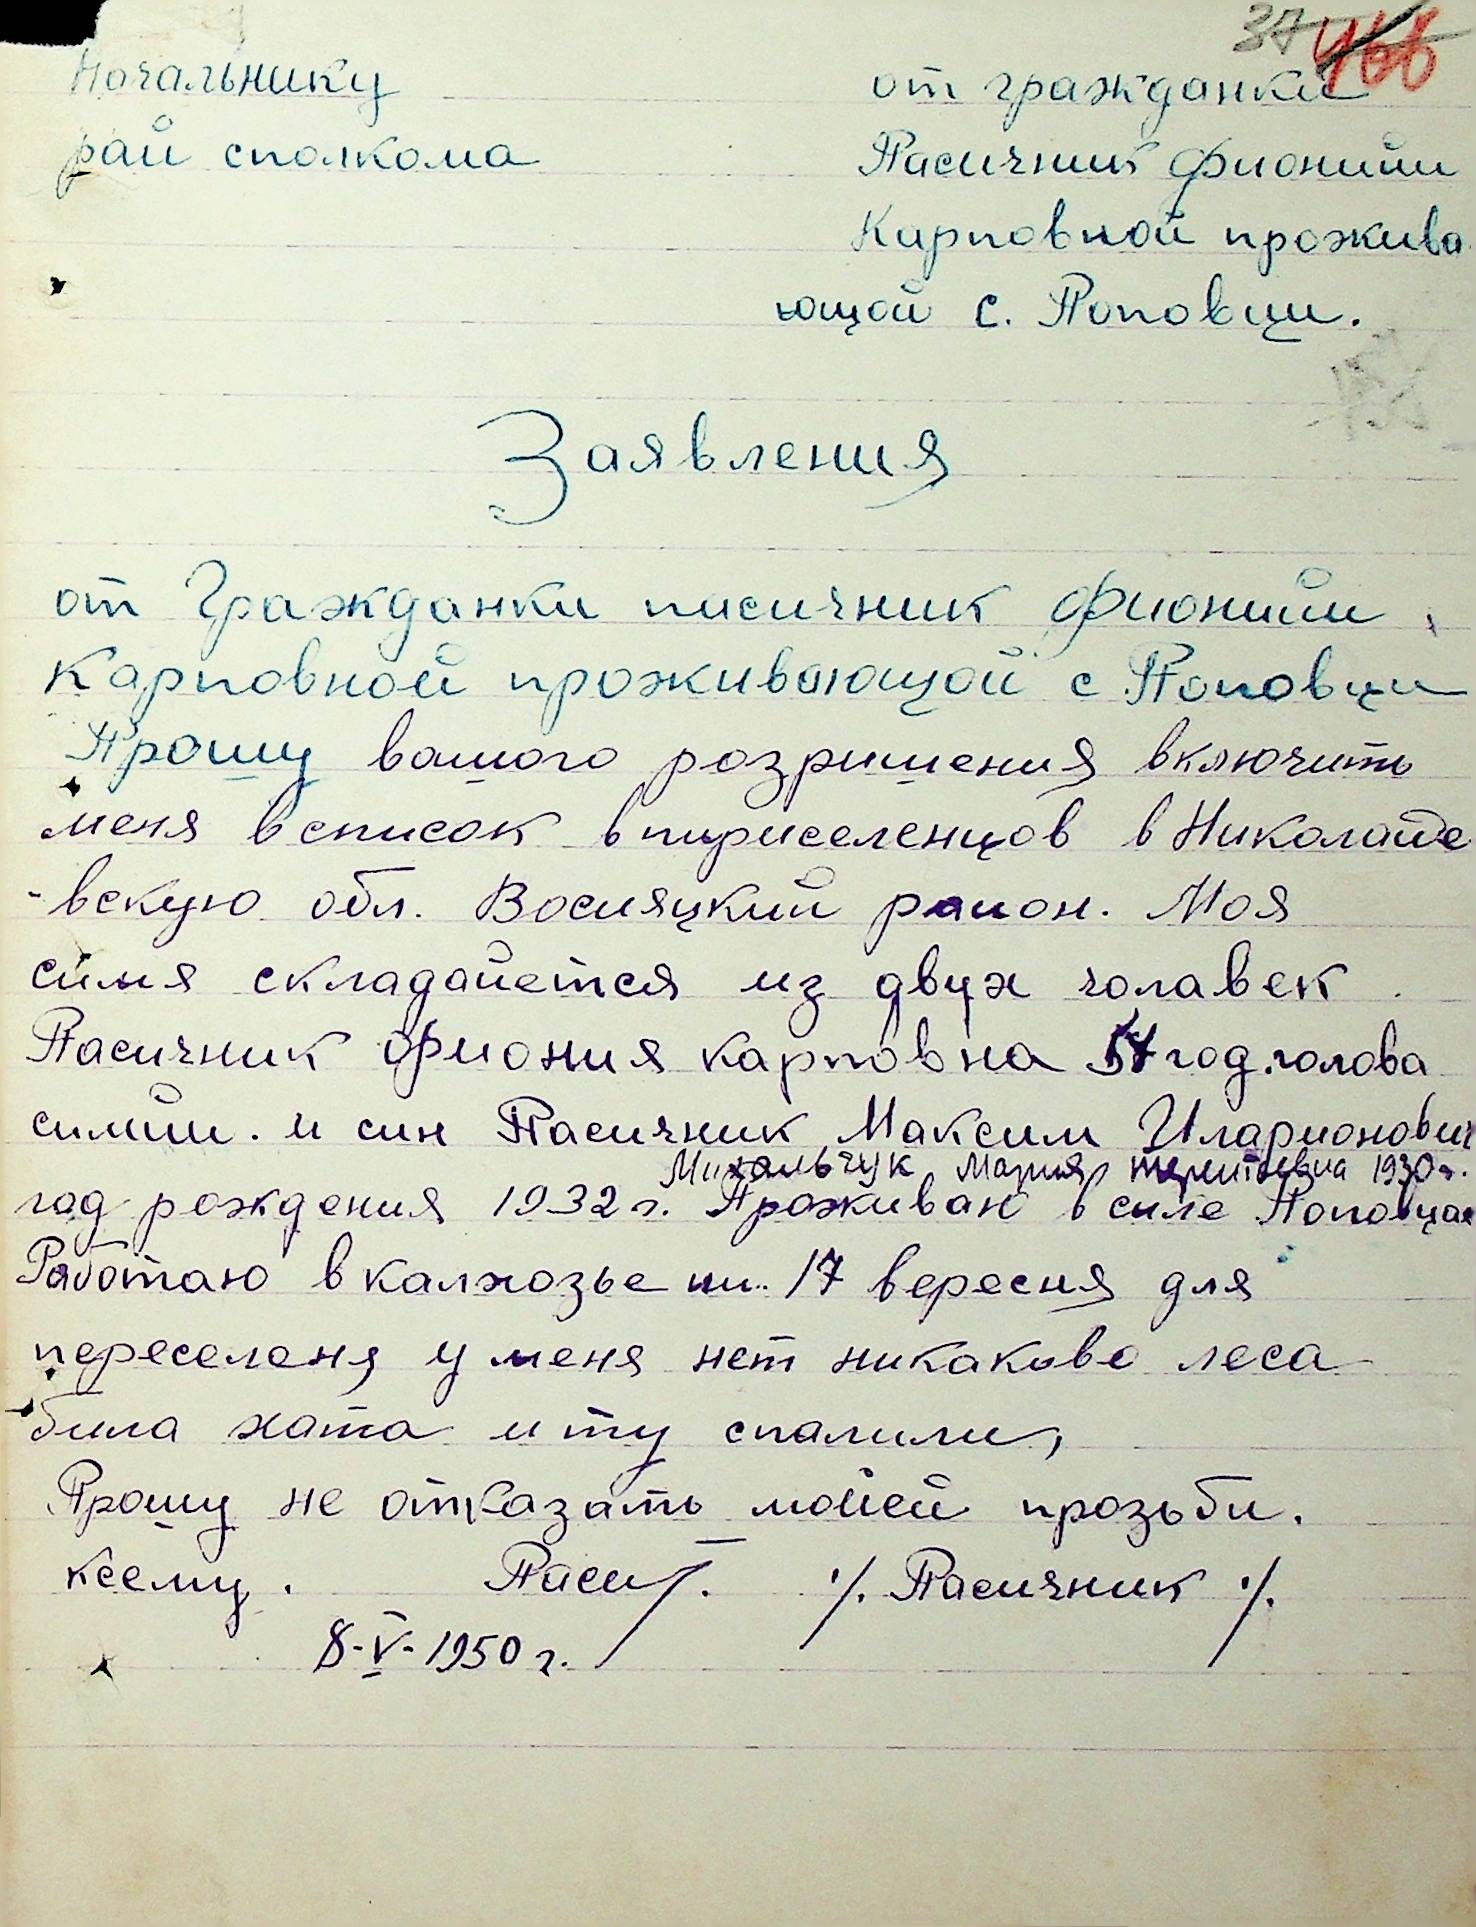 37 466
Начальнику
рай сполкома
от гражданки
Пасичник Фионийи
Карповной прожива
ющой с. Поповци.
Заявления
от Гражданки пасичник Фионийи
Карповной проживающой с Поповци
Прошу вашого розришения включить
меня в список впириселенцов в Николайе
-вскую обл. Восияцкий район. Моя
симя складайется из двух чолавек
Пасичник Фиония Карповна 57 год. голова
симйи. и син Пасичник Максим Иларионович
Михальчук Мария теритоевна 1930 г.
год рождения 1932 г. Проживаю в силе Поповцах
Работаю в калхозье им. 17 вересня для
переселеня у меня нет никаково леса
била хата и ту спалили,
Прошу не отказать мойей прозьби.
ксему. Паси ·/. Пасичник ·/.
8-V-1950 г.